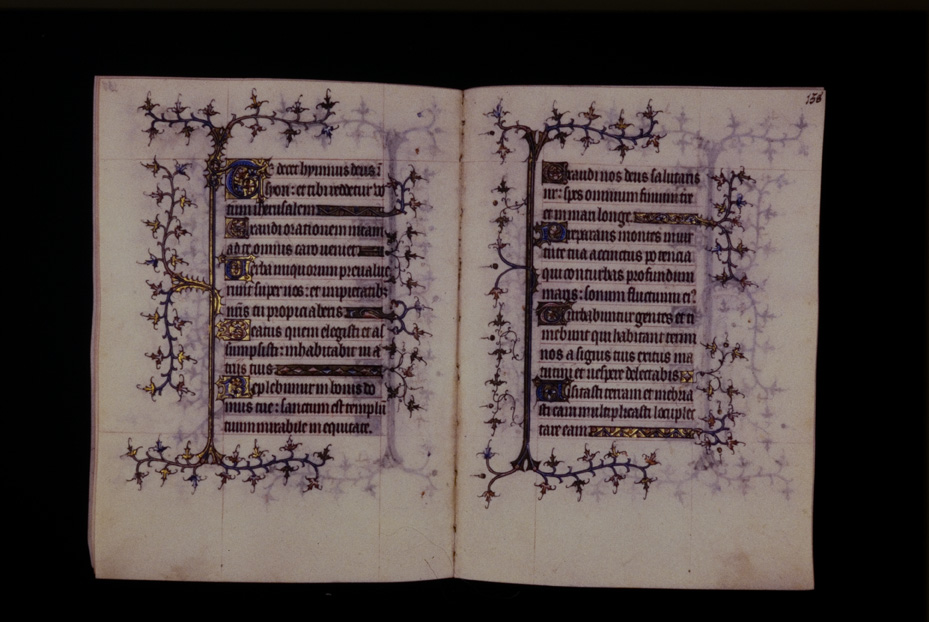 Te decet hymnus deus ī
syon: et tibi reddetur vo
tum iherusalem
Exaudi orationem meam
ad te omnis caro veniet
Verba iniquorum prevalue
runt super nos: et impietatib;
nr̄is tu propiciaberis
Beatus quem elegisti et as
sumpsisti: inhabitabit in a
triis tuis
Replebimur in bonis do
mus tue: sanctum est templū
tuum mirabile in equitate.
136
Exaudi nos deus salutaris
nr̄: spes omnium finium tr̄e
et in mari longe
Preparans montes in vir
tute tua accinctus potencia
qui conturbas profundum
maris: sonum fluctuum eī?
Turbabuntur gentes et ti
mebunt qui habitant termi
nos a signis tuis exitus ma
tutini et vespere delectabis
Visitasti terram et inebria
sti eam multiplicasti locuple
tare eam